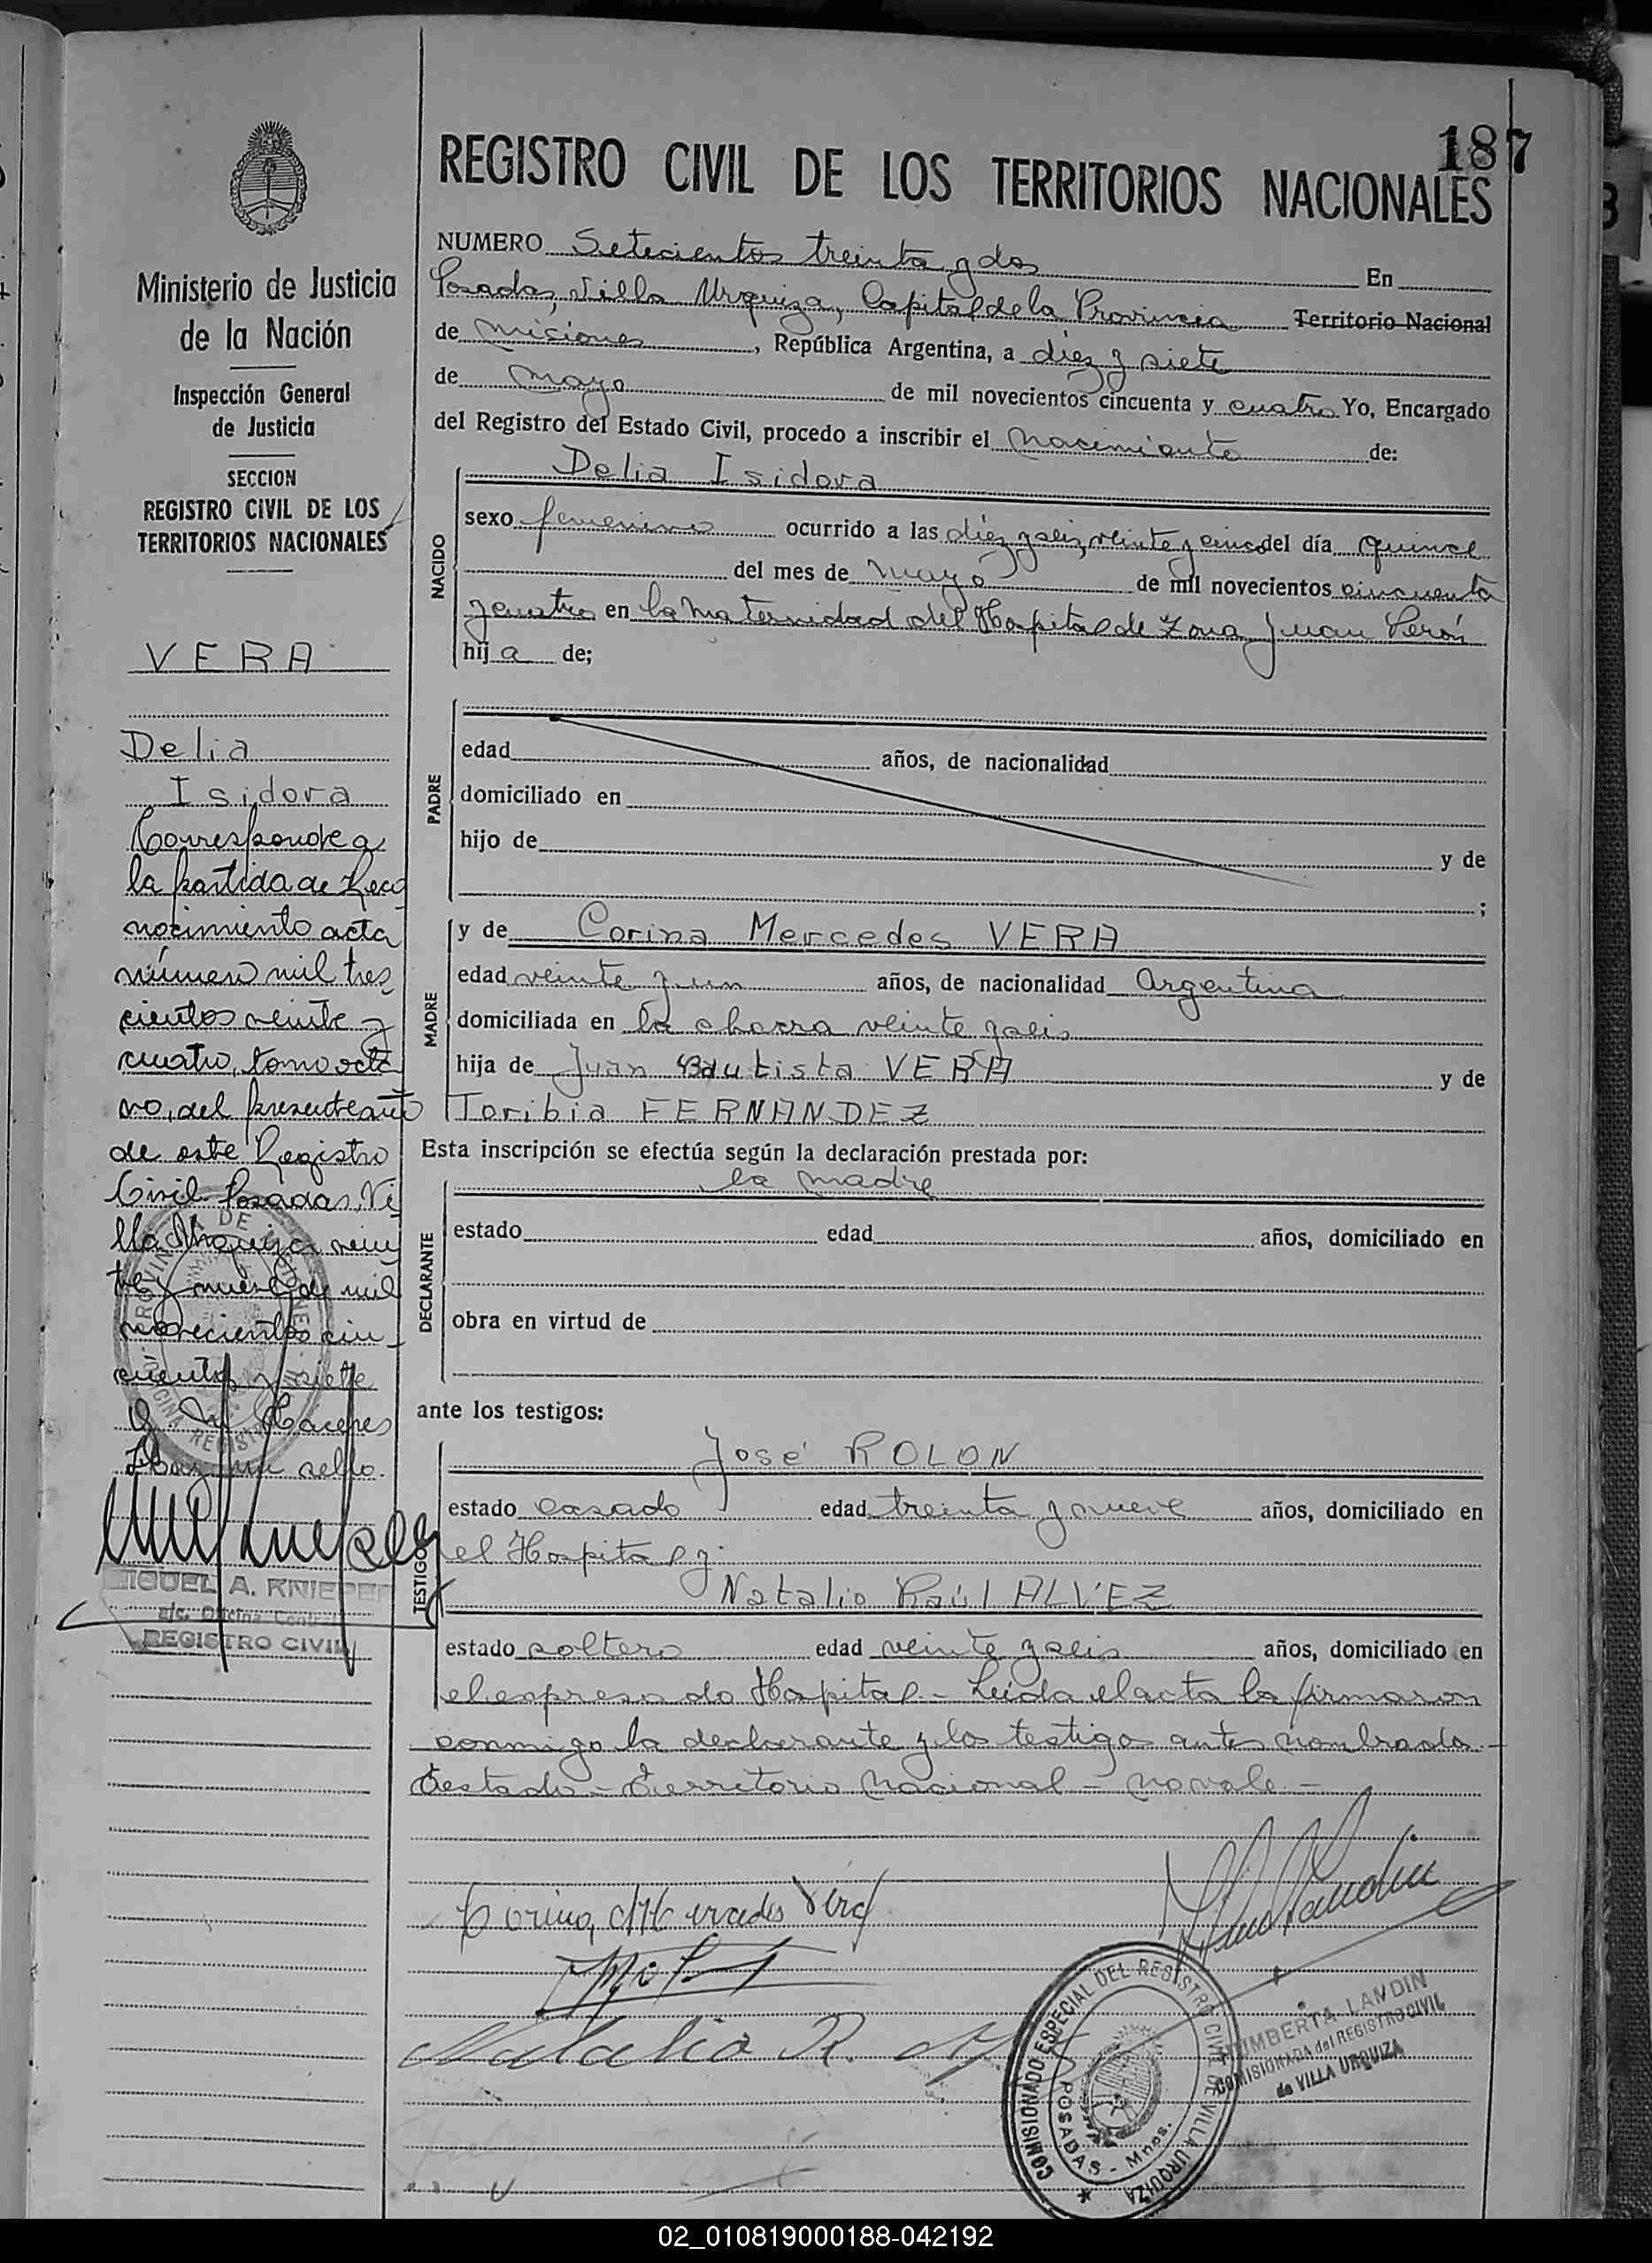 187
REGISTRO CIVIL DE LOS TERRITORIOS NACIONALES
Ministerio de Justicia
de la Nación
Inspección General
de Justicia
SECCION
REGISTRO CIVIL DE LOS
TERRITORIOS NACIONALES
VERA
Delia
Isidora
Corresponde a
la partida de Reco
nocimiento acta
número mil tres
cientos veinte y
cuatro, tomo octa
vo, del presente año
de este Registro
Civil. Posadas, Vi
lla Urquiza
mil
novecientos cin
cuenta y siete
Hay un sello.
MIGUEL A. KNIEPER
a/c. Oficina Central
REGISTRO CIVIL
NUMERO Setecientos treinta y dos En
Posadas, Villa Urquiza, Capital de la Provincia Territorio Nacional
de Misiones, República Argentina, a diez y siete
de mayo de mil novecientos cincuenta y cuatro Yo, Encargado
del Registro del Estado Civil, procedo a inscribir el Nacimiento de:
NACIDO
Delia Isidora
sexo femenino ocurrido a las diez y seis, veinte y cinco del día quince
del mes de mayo de mil novecientos cincuenta
y cuatro en la Maternidad del Hospital de Zona Juan Perón
hij a de;
PADRE
edad años, de nacionalidad
domiciliado en
hijo de y de
;
MADRE
y de Corina Mercedes VERA
edad veinte y un años, de nacionalidad Argentina
domiciliada en la chacra veinte y seis
hija de Juan Bautista VERA y de
Toribia FERNANDEZ
Esta inscripción se efectúa según la declaración prestada por:
DECLARANTE
la madre
estado edad años, domiciliado en
obra en virtud de
ante los testigos:
TESTIGO
José ROLON
estado casado edad treinta y nueve años, domiciliado en
el Hospital y
Natalio Raúl ALVEZ
estado soltero edad veinte y seis años, domiciliado en
el expresado Hospital - Leída el acta la firmaron
conmigo la declarante y los testigos antes nombrados -
Testado - Territorio Nacional - no vale -
Corina Mercedes Vera
Natalio R.
COMISIONADO ESPECIAL DEL REGISTRO CIVIL DE VILLA URQUIZA
POSADAS - Mnes.
HUMBERTA LANDIN
COMISIONADA del REGISTRO CIVIL
de VILLA URQUIZA
02_010819000188-042192